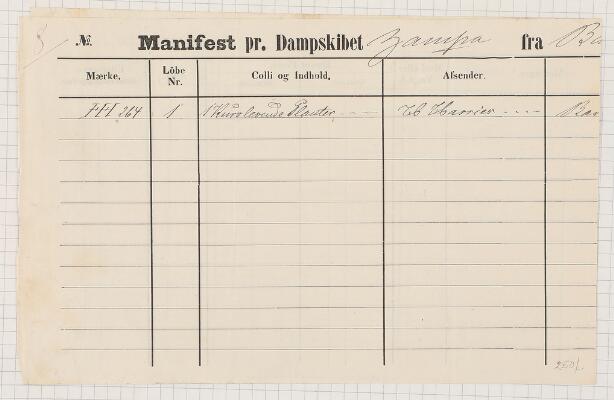 № Manifest pr. Dampskibet Zampa fra
Mærke. Löbe Nr. Colli og Indhold. Afsender.
HH 264 1 1 Kurv levende Planter --- Th Harrier ---